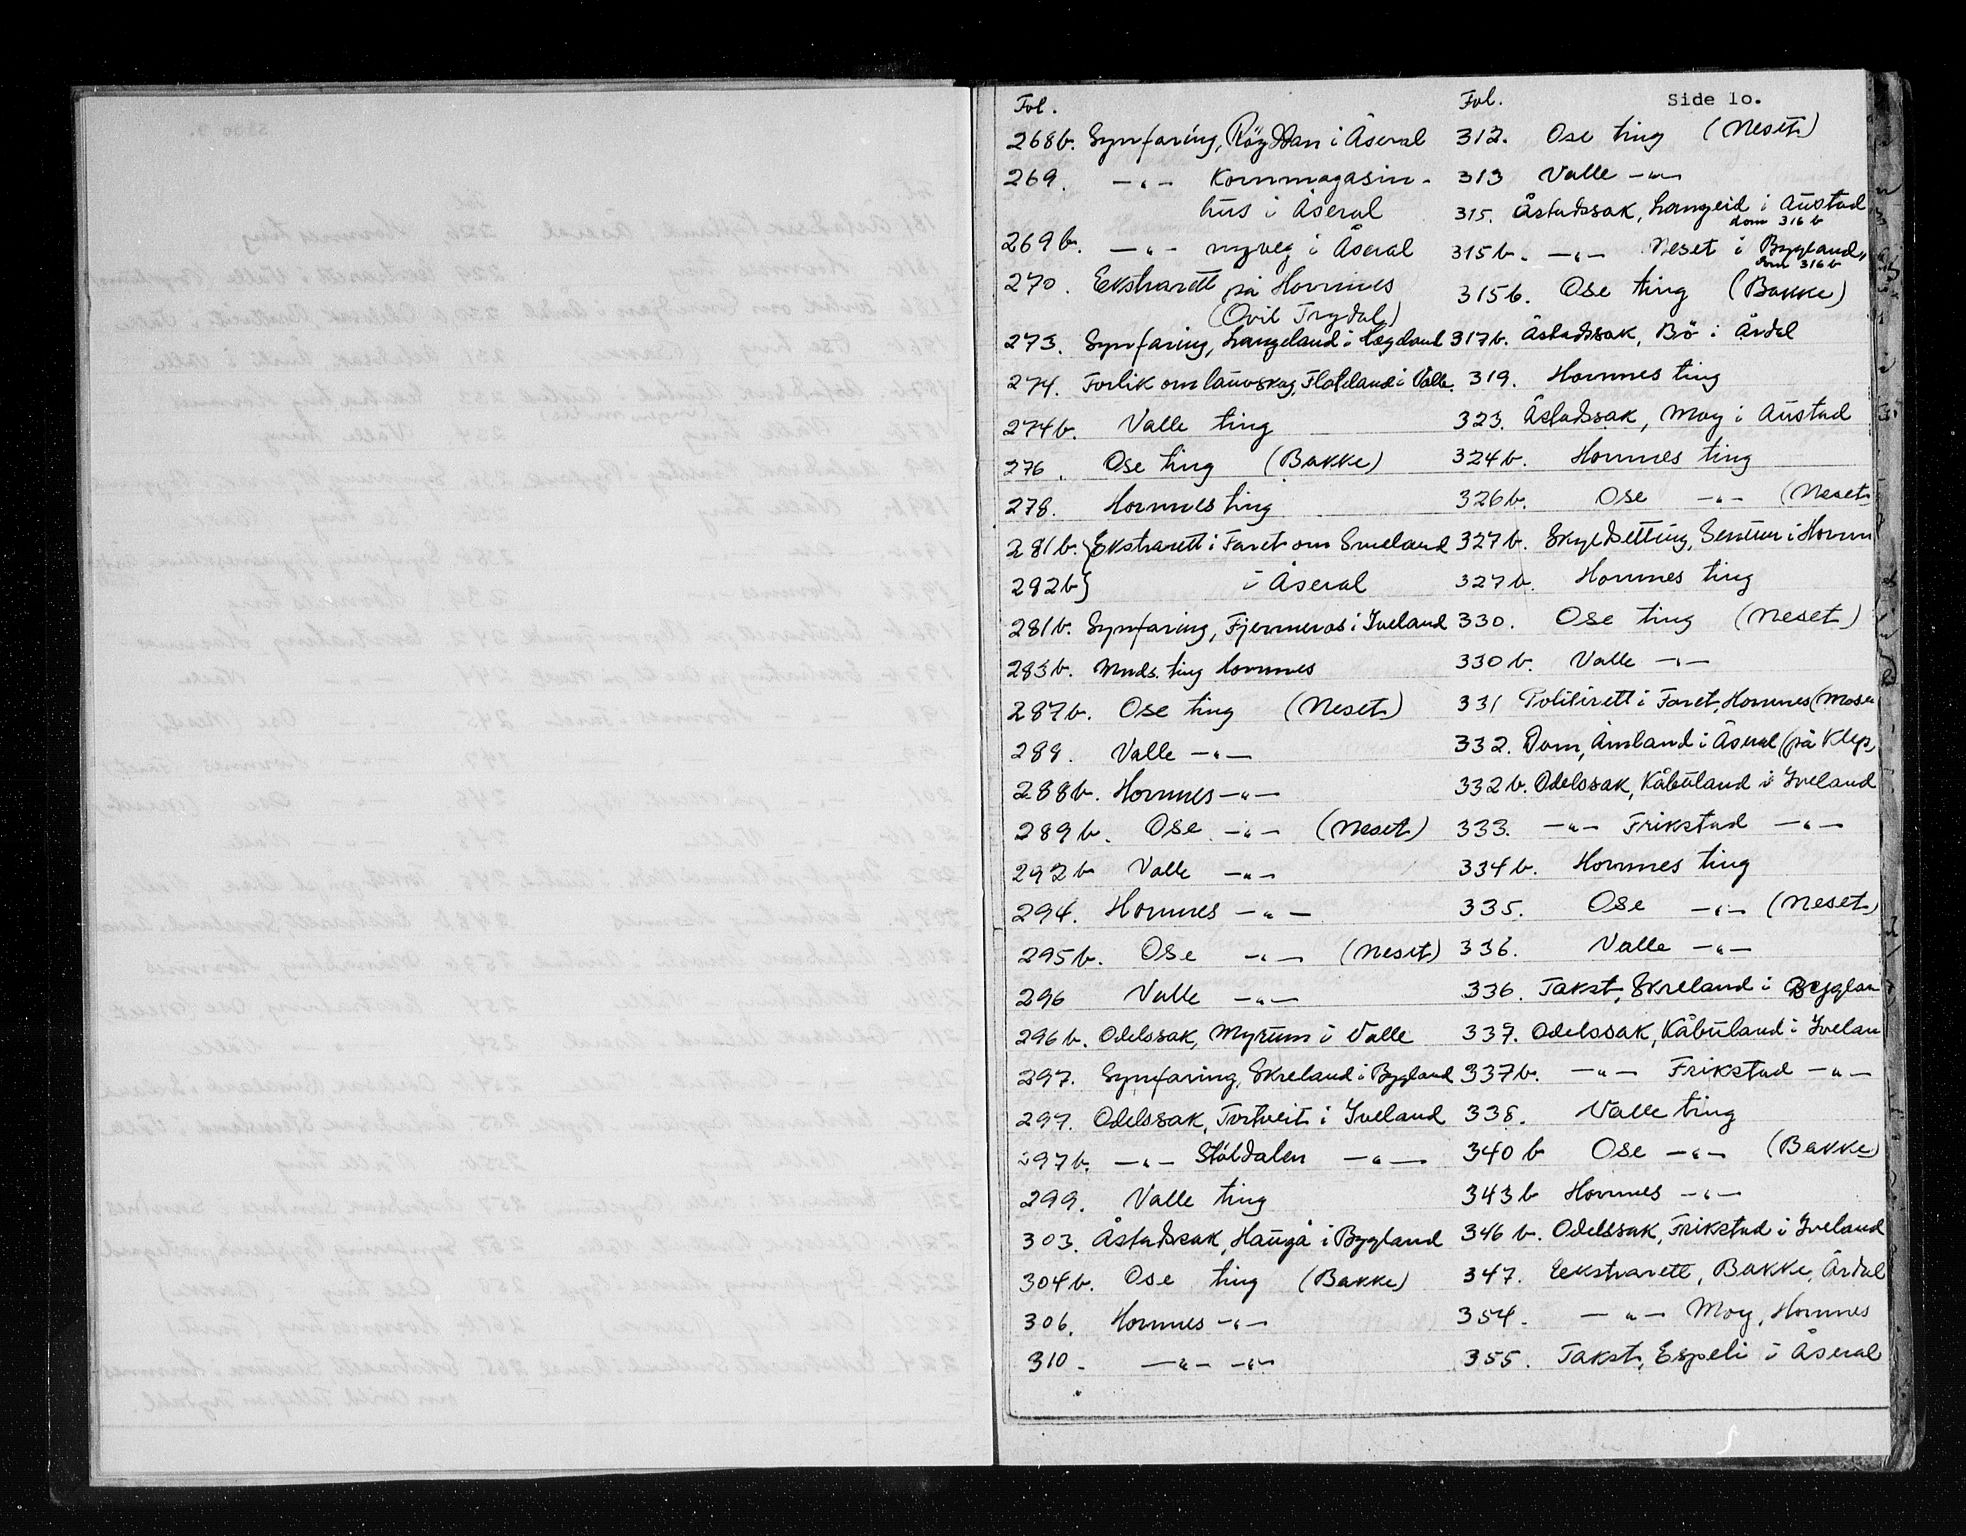 Side 1o.
Fol.
268b. Synfaring, Røyddan i Åseral
269. —"— Kornmagasin-
hus i Åseral
269b. —"— nyveg i Åseral
270. Ekstrarett på Hornnes
(Ovil Trydal)
273. Synfaring, Langeland i Hægeland
274. Forlik om lauvskog, Flateland i Valle.
274b. Valle ting
276. Ose ting (Bakke)
278. Hornnes ting
281b. } Ekstrarett i Faret om Smeland
282b } i Åseral
281b. Synfaring, Fjermeros i Iveland
283b. Mnds. ting Hornnes
287b. Ose ting (Neset)
288. Valle —"—
288b. Hornnes —"—
289b. Ose —"— (Neset)
292b Valle —"—
294. Hornnes —"—
295b. Ose —"— (Neset)
296 Valle —"—
296b. Odelssak, Myrum i Valle
297. Synfaring, Skreland i Bygland
297. Odelssak, Tortveit i Iveland
297b. —"— Støldalen —"—
299. Valle ting
303. Åstadssak, Haugå i Bygland
304b. Ose ting (Bakke)
306. Hornnes —"—
310. —"— —"—
Fol.
312. Ose ting (Neset)
313 Valle —"—
315. Åstadssak, Langeid i Austad
dom 316 b
315b. —"— Neset i Bygland,
dom 316 b
315b. Ose ting (Bakke)
317b. Åstadssak, Bö i Årdal
319. Hornnes ting
323. Åstadssak, Moy i Austad
324b. Hornnes ting
326b. Ose —"— (Neset
327b. Skyldsetting, Senum i Hornn
327b. Hornnes ting
330. Ose ting (Neset)
330b. Valle —"—
331 Politirett i Faret, Hornnes (Mose
332. Dom, Åmland i Åseral (på Klep
332b. Odelssak, Kåbuland i Iveland
333. —"— Frikstad —"—
334b. Hornnes ting
335. Ose —"— (Neset)
336. Valle —"—
336. Takst, Skreland i Byglan
337. Odelssak, Kåbuland i Ivelan
337b. —"— Frikstad —"—
338. Valle ting
340b Ose —"— (Bakke)
343b Hornnes —"—
346b. Odelssak, Frikstad i Iveland
347. Eekstrarett, Bakke, Årdal
354. —"— Moy, Hornnes
355. Takst, Espeli i Åseral